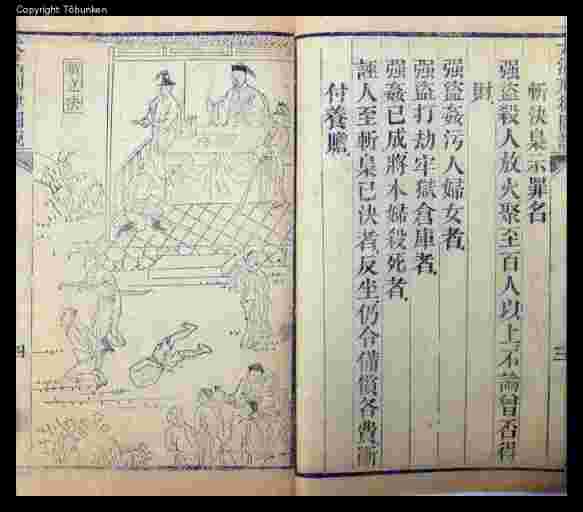 Copyright Tōbunken
斬決梟示罪名
強盜殺人放火聚至百人以上不論曾否得
財
強盜姦污人婦女者
強盜打劫牢獄倉庫者
强姦已成將本婦殺死者
誣人至斬梟已決者反坐仍令備償各費斷
付養贍
立決
四